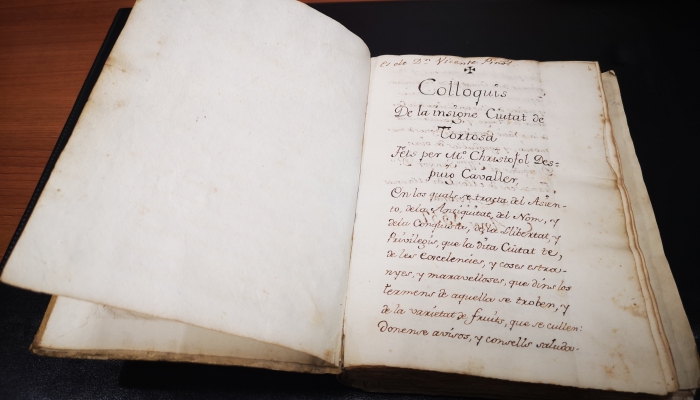 Es de Dn. Vicente Pinol.
Colloquis
De la insigne Ciutat de
Tortosa
Fets per Mº. Christofol Des=
puig Cavaller,
En los quals se tracta del Asien-
to, de la Antiguitat, del Nom, y
de la Conquista, de la Llibertat, y
Privilegis, que la dita Ciutat te,
de les Excelencies, y coses estra-
nyes, y maravelloses, que dins los
termens de aquella se troben, y
de la varietat de fruits, que se cullen:
Donense avisos, y consells saluda-